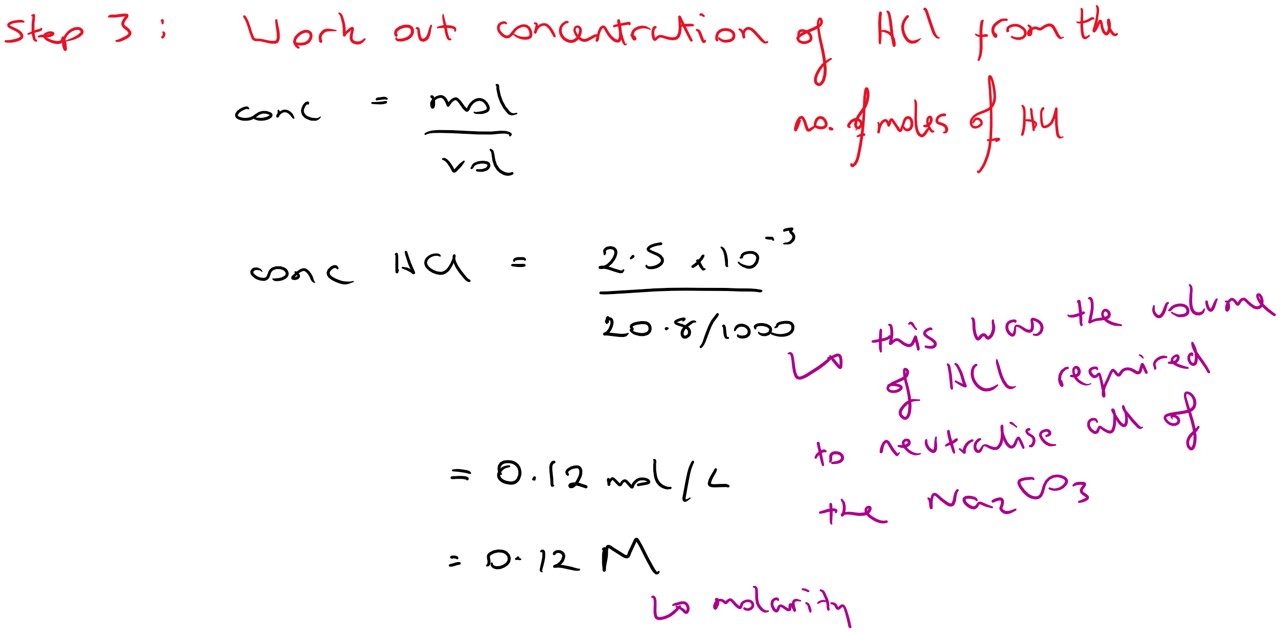 Step 3: Work out concentration of HCl from the
no. of moles of HCl
conc = mol
vol
conc HCl = 2.5 x 10⁻³
20.8/1000
↳ this was the volume
of HCl required
to neutralise all of
the Na₂CO₃
= 0.12 mol/L
= 0.12 M
↳ molarity